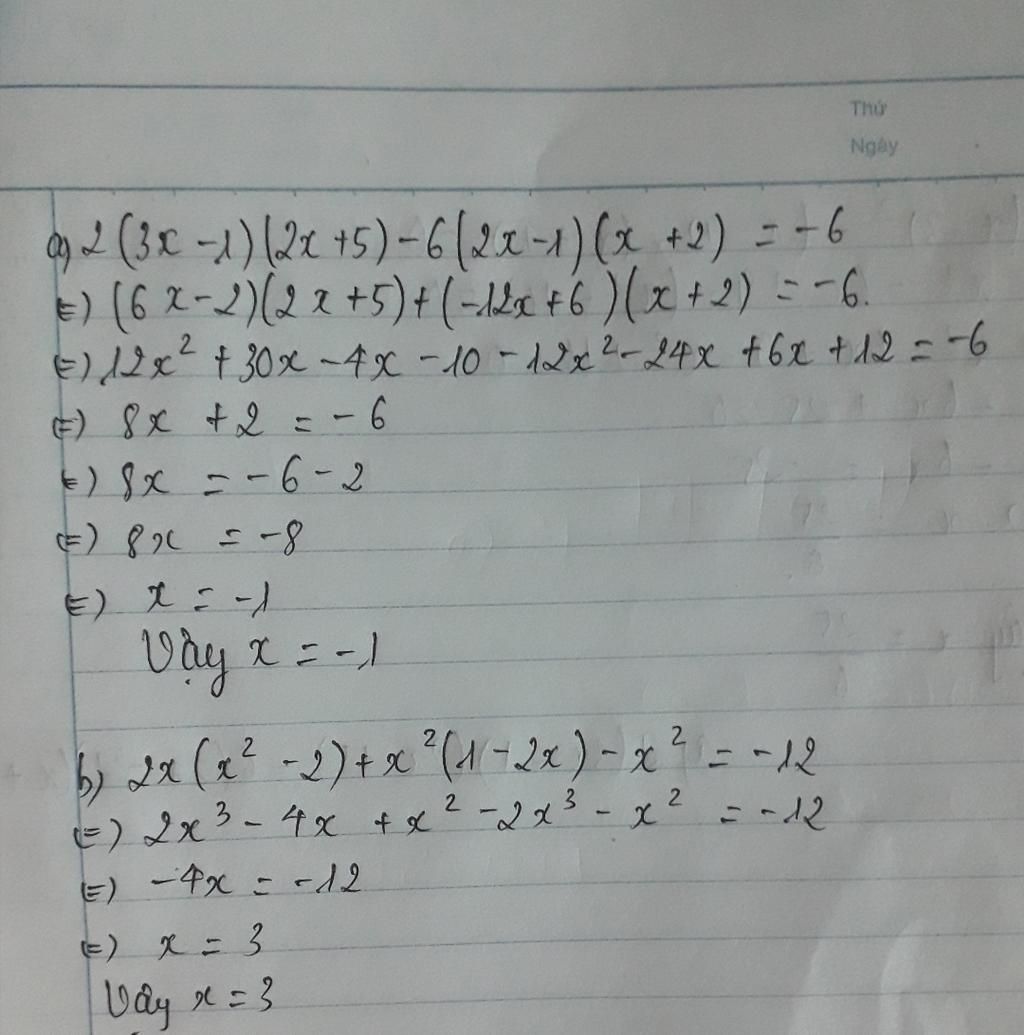 Thứ
Ngày
a) 2(3x-1)(2x+5)-6(2x-1)(x+2) = -6
(=) (6x-2)(2x+5)+(-12x+6)(x+2) = -6.
(=) 12x² + 30x - 4x - 10 - 12x² - 24x + 6x + 12 = -6
(=) 8x + 2 = -6
(=) 8x = -6 - 2
(=) 8x = -8
(=) x = -1
Vậy x = -1
b) 2x(x² - 2) + x²(1 - 2x) - x² = -12
(=) 2x³ - 4x + x² - 2x³ - x² = -12
(=) -4x = -12
(=) x = 3
Vậy x = 3